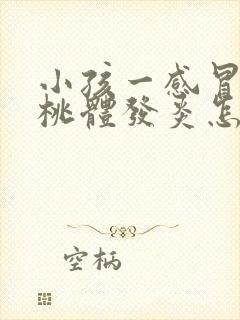 小孩一感冒
桃體發炎怎
空柄